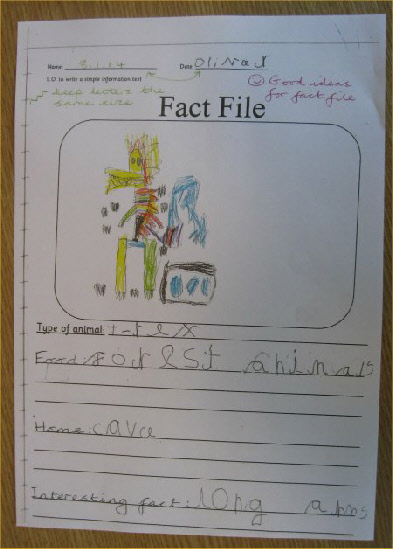 Name 8.1.14 Date Olivia J
L.O to write a simple information text
keep letters the same size
☺ Good ideas for fact file
Fact File
Type of animal: t-rex
Food: Forest animals
Home: cave
Interesting fact: long arms